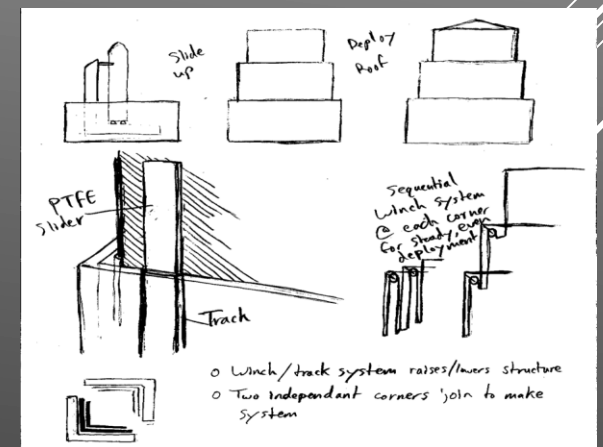 Slide
up
Deploy
Roof
PTFE
Slider
Track
Sequential
Winch System
@ each corner
for steady, even
deployment
o Winch/track system raises/lowers structure
o Two independant corners join to make
System